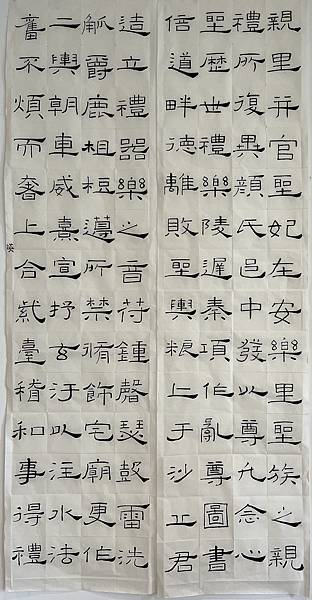 親里并官聖妃在安樂里聖族之親
禮所復異顏氏邑中發以尊孔念心
聖歷世禮樂陵遲秦項作亂尊圖書
倍道畔德離敗聖輿粮亡于沙丘君
造立禮器樂之音苻鍾磬瑟鼓雷洗
觚爵鹿柤梪籩所禁脩飾宅廟更作
二輿朝車威熹宣抒玄汙以注水法
舊不煩而奢上合紫臺稽和事得禮